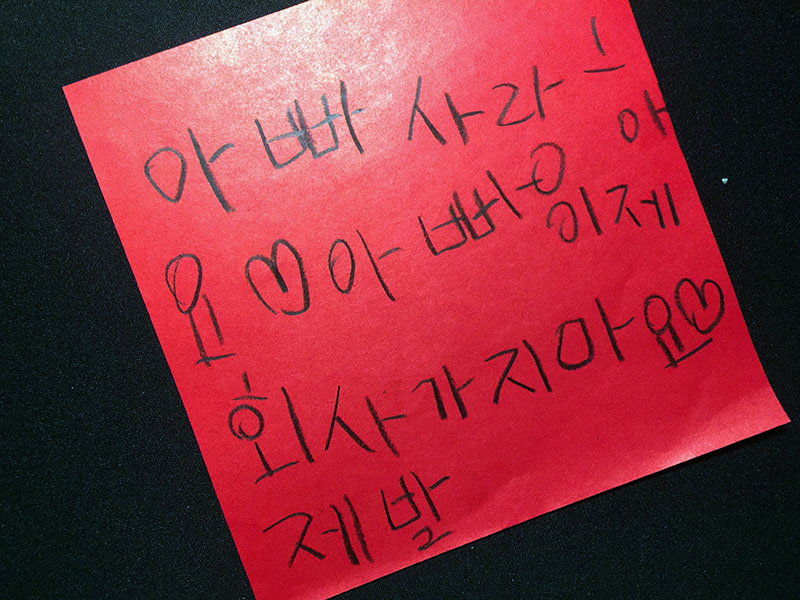 아빠 사랑하
요♡아빠 이제
회사가지마요♡
제발